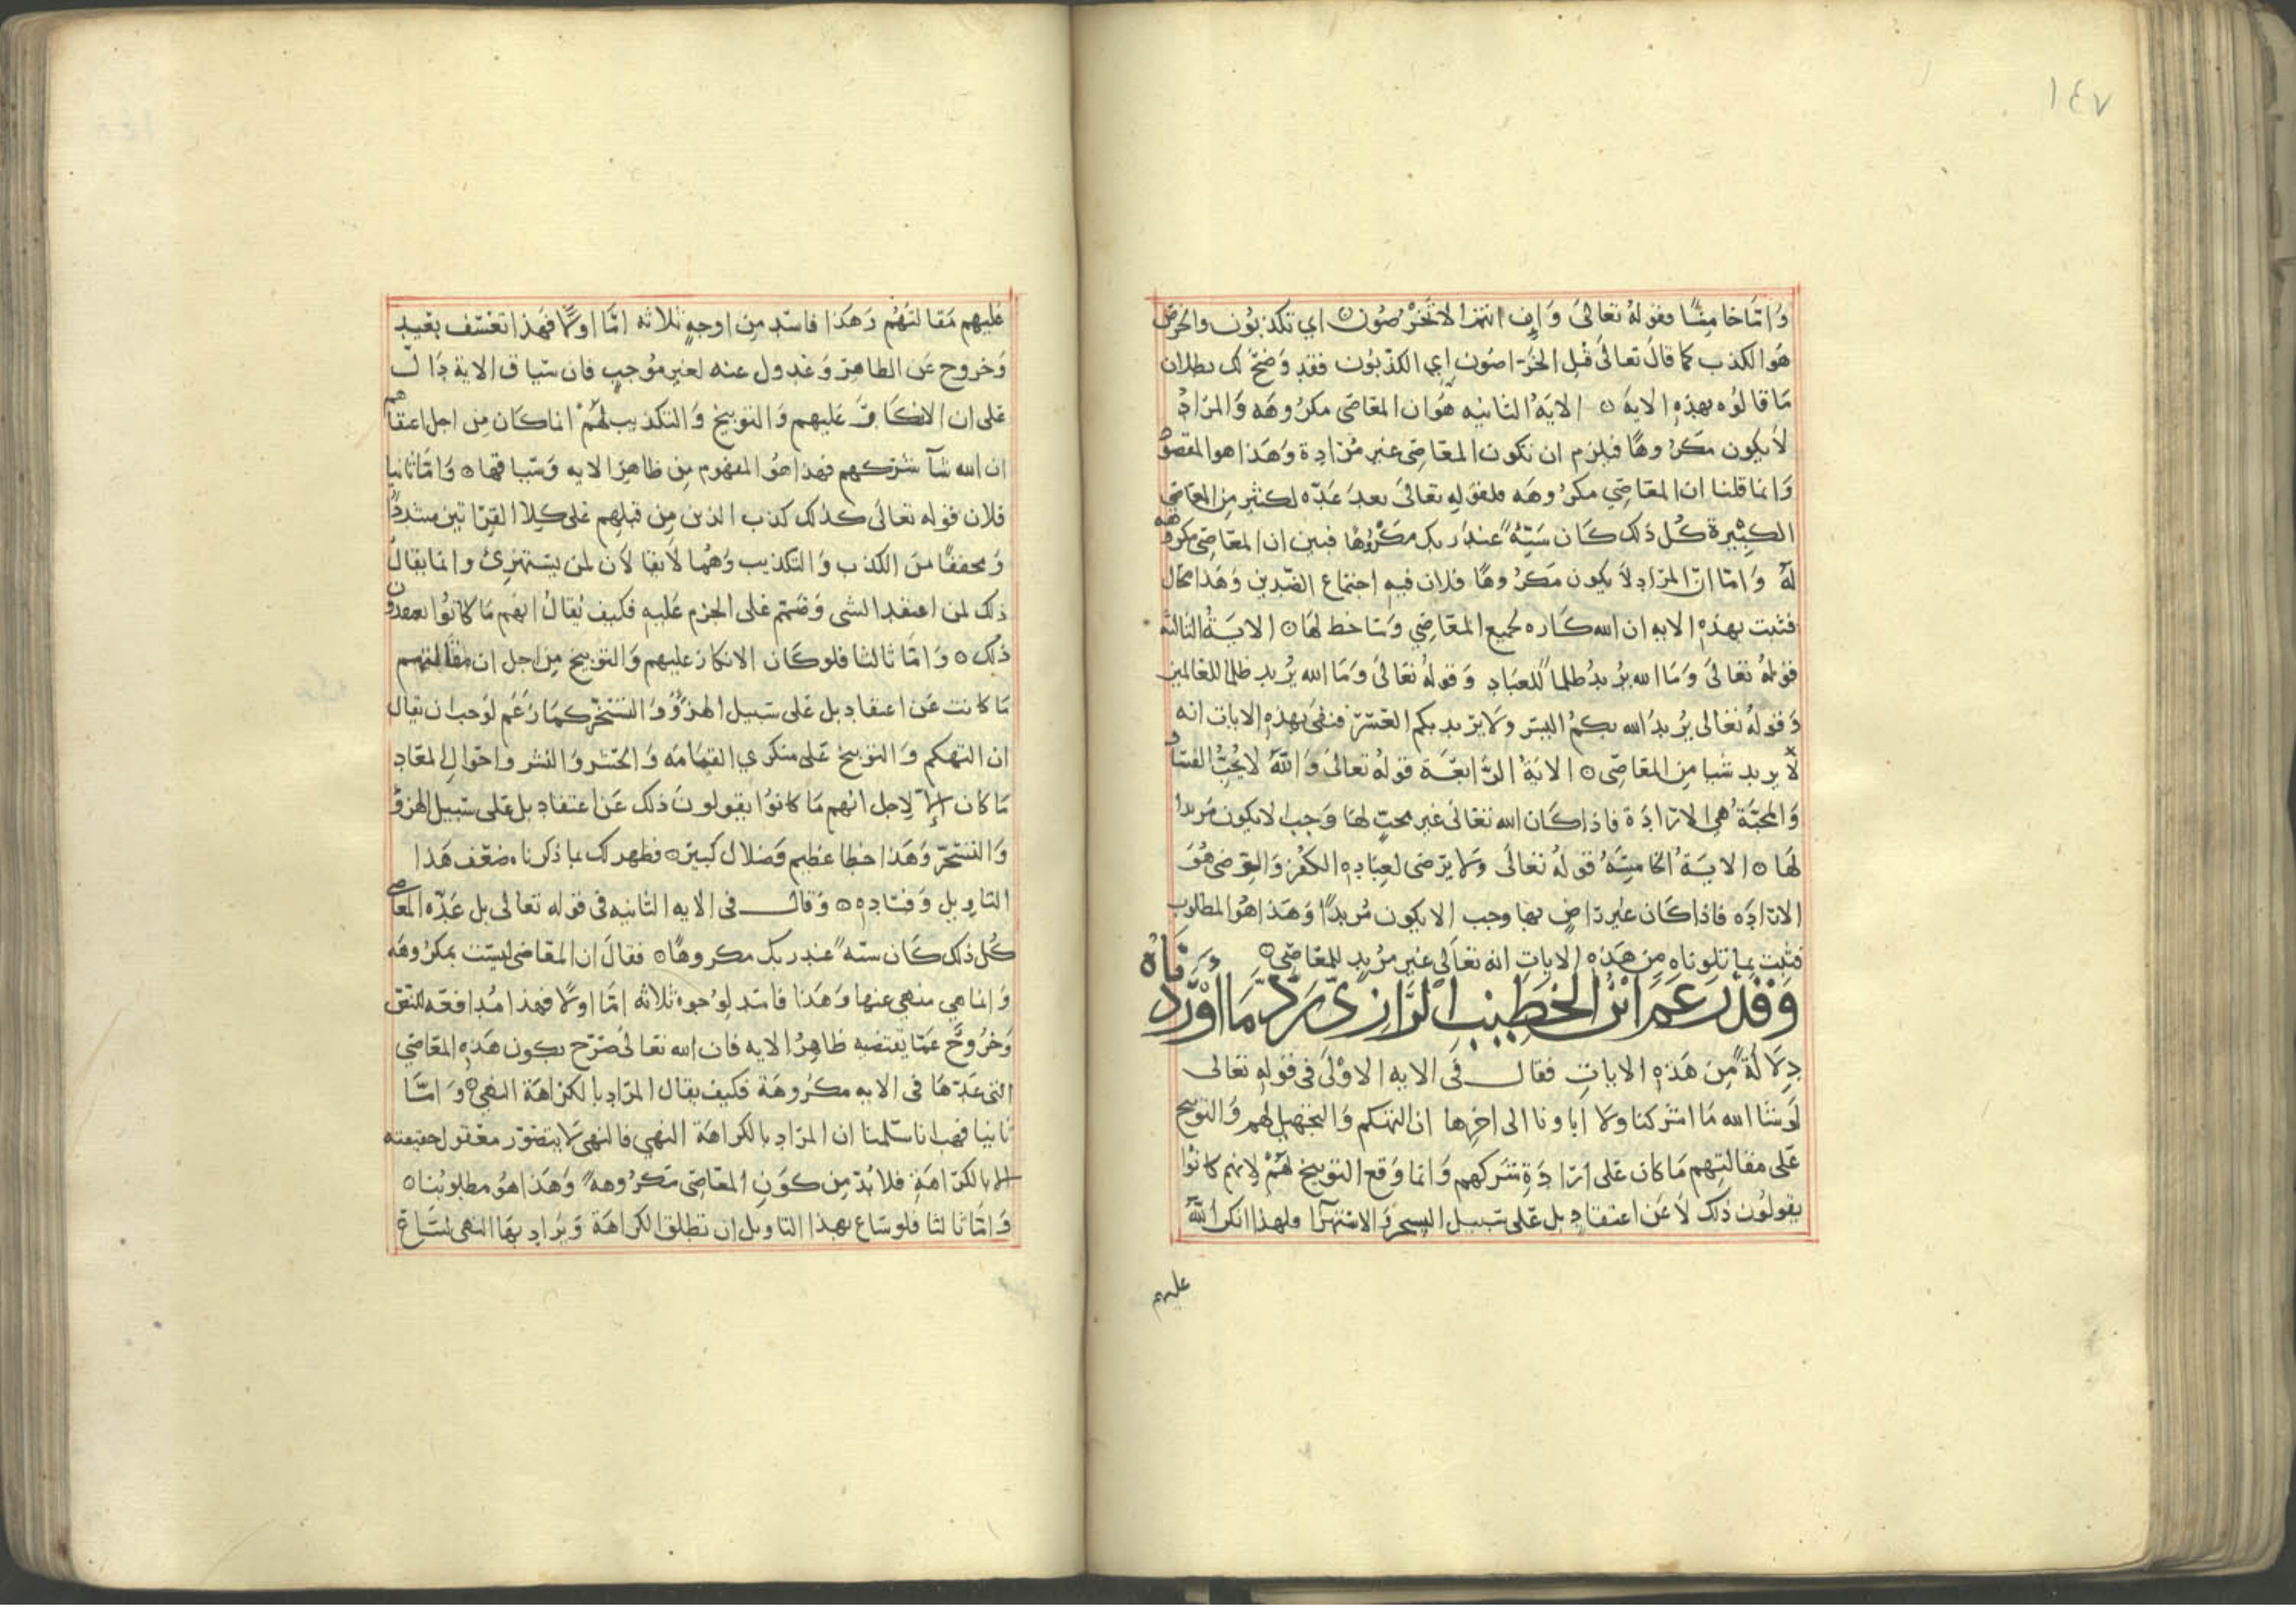 ١٤٧
وامّا خامسًا فقوله تعالى وان انتم الا تخرصون اي تكذبون والخرص
هو الكذب كما قال تعالى قتل الخراصون اي الكذبون فقد وضح لك بطلان
ما قالوه بهذه الايه الايه الثانيه هو ان المعاصى مكروهه والمراد
لا يكون مكروهًا فيلزم ان تكون المعاصى غير مرادة وهذا هو المقصود
وانما قلنا ان المعاصي مكروهه فلقوله تعالى بعد عدّه لكثير من المعاصي
الكبيرة كل ذلك كان سيّه عند ربك مكروهًا فبين ان المعاصى مكروهه
له وامّا ان المراد لا يكون مكروهًا فلان فيه اجتماع الضدين وهذا محال
فثبت بهذه الايه ان الله كاره لجميع المعاصي وساخط لها الاية الثالثه
قوله تعالى وما الله يريد ظلما للعباد وقوله تعالى وما الله يريد ظلما للعالمين
وقوله تعالى يريد الله بكم اليسر ولا يريد بكم العسر فنفى بهذه الايات انه
لا يريد شيا من المعاصى الاية الرابعة قوله تعالى والله لا يحب الفساد
والمحبّة هي الارادة فاذا كان الله تعالى غير محبّ لها وجب الا يكون مريدا
لها الاية الخامسة قوله تعالى ولا يرضى لعباده الكفر والرضى هو
الاراده فاذا كان غير راضٍ بها وجب الا يكون مريدًا وهذا هو المطلوب
فثبت بما تلوناه من هذه الايات انه تعالى غير مريد للمعاصي
وقد زعم ابن الخطيب الرازي ردّ ما اوردناه
دلالة من هذه الايات فقال في الايه الاولى في قوله تعالى
لو شا الله ما اشركنا ولا اباونا الى اخرها ان التهكم والتجهيل لهم والتوبيخ
على مقالتهم ما كان على ارادة شركهم وانما وقع التوبيخ لهم لانهم كانوا
يقولون ذلك لا عن اعتقاد بل على سبيل السخر والاستهزا ولهذا انكر الله
عليهم
عليهم مقالتهم وهذا فاسد من اوجه ثلاثه امّا اولًا فهذا تعسّف بعيد
وخروج عن الظاهر وعدول عنه لغير موجب فان سياق الاية دال
على ان الانكار عليهم والتوبيخ والتكذيب لهم انما كان من اجل اعتقادهم
ان الله شآ شركهم فهذا هو المفهوم من ظاهر الايه وسياقها وامّا ثانيا
فلان قوله تعالى كذلك كذب الذين من قبلهم على كلا القراتين مشددًا
ومخففًا من الكذب والتكذيب وهما لا يقالان لمن يستهزئ وانما يقال
ذلك لمن اعتقد الشى وصمّم على الجزم عليه فكيف يقال انهم ما كانوا يعتقدون
ذلك وامّا ثالثا فلو كان الانكار عليهم والتوبيخ من اجل ان مقالتهم
ما كانت عن اعتقاد بل على سبيل الهزؤ والتسخّر كما زعم لوجب ان يقال
ان التهكم والتوبيخ على منكري القيامه والحشر والنشر واحوال المعاد
ما كان الا لاجل انهم ما كانوا يقولون ذلك عن اعتقاد بل على سبيل الهزؤ
والتسخّر وهذا خطا عظيم وضلال كبير فظهر لك بما ذكرنا ضعف هذا
التاويل وفساده وقال في الايه الثانيه في قوله تعالى بل عدّه المعاصي
كل ذلك كان سيّه عند ربك مكروهًا فقال ان المعاصى ليست بمكروهه
وانما هي منهي عنها وهذا فاسد لوجوه ثلاثه امّا اولًا فهذا مدافعة للنص
وخروج عمّا يقتضيه ظاهر الايه فان الله تعالى صرّح بكون هذه المعاصي
التى عدّها في الايه مكروهة فكيف يقال المراد بالكراهة النهي وامّا
ثانيا فهب انا سلمنا ان المراد بالكراهة النهي فالنهي لا يتصوّر معقول حقيقته
الا بالكراهة فلا بدّ من كون المعاصى مكروهه وهذا هو مطلوبنا
وامّا ثالثا فلو ساغ بهذا التاويل ان تطلق الكراهة ويراد بها النهى لساغ